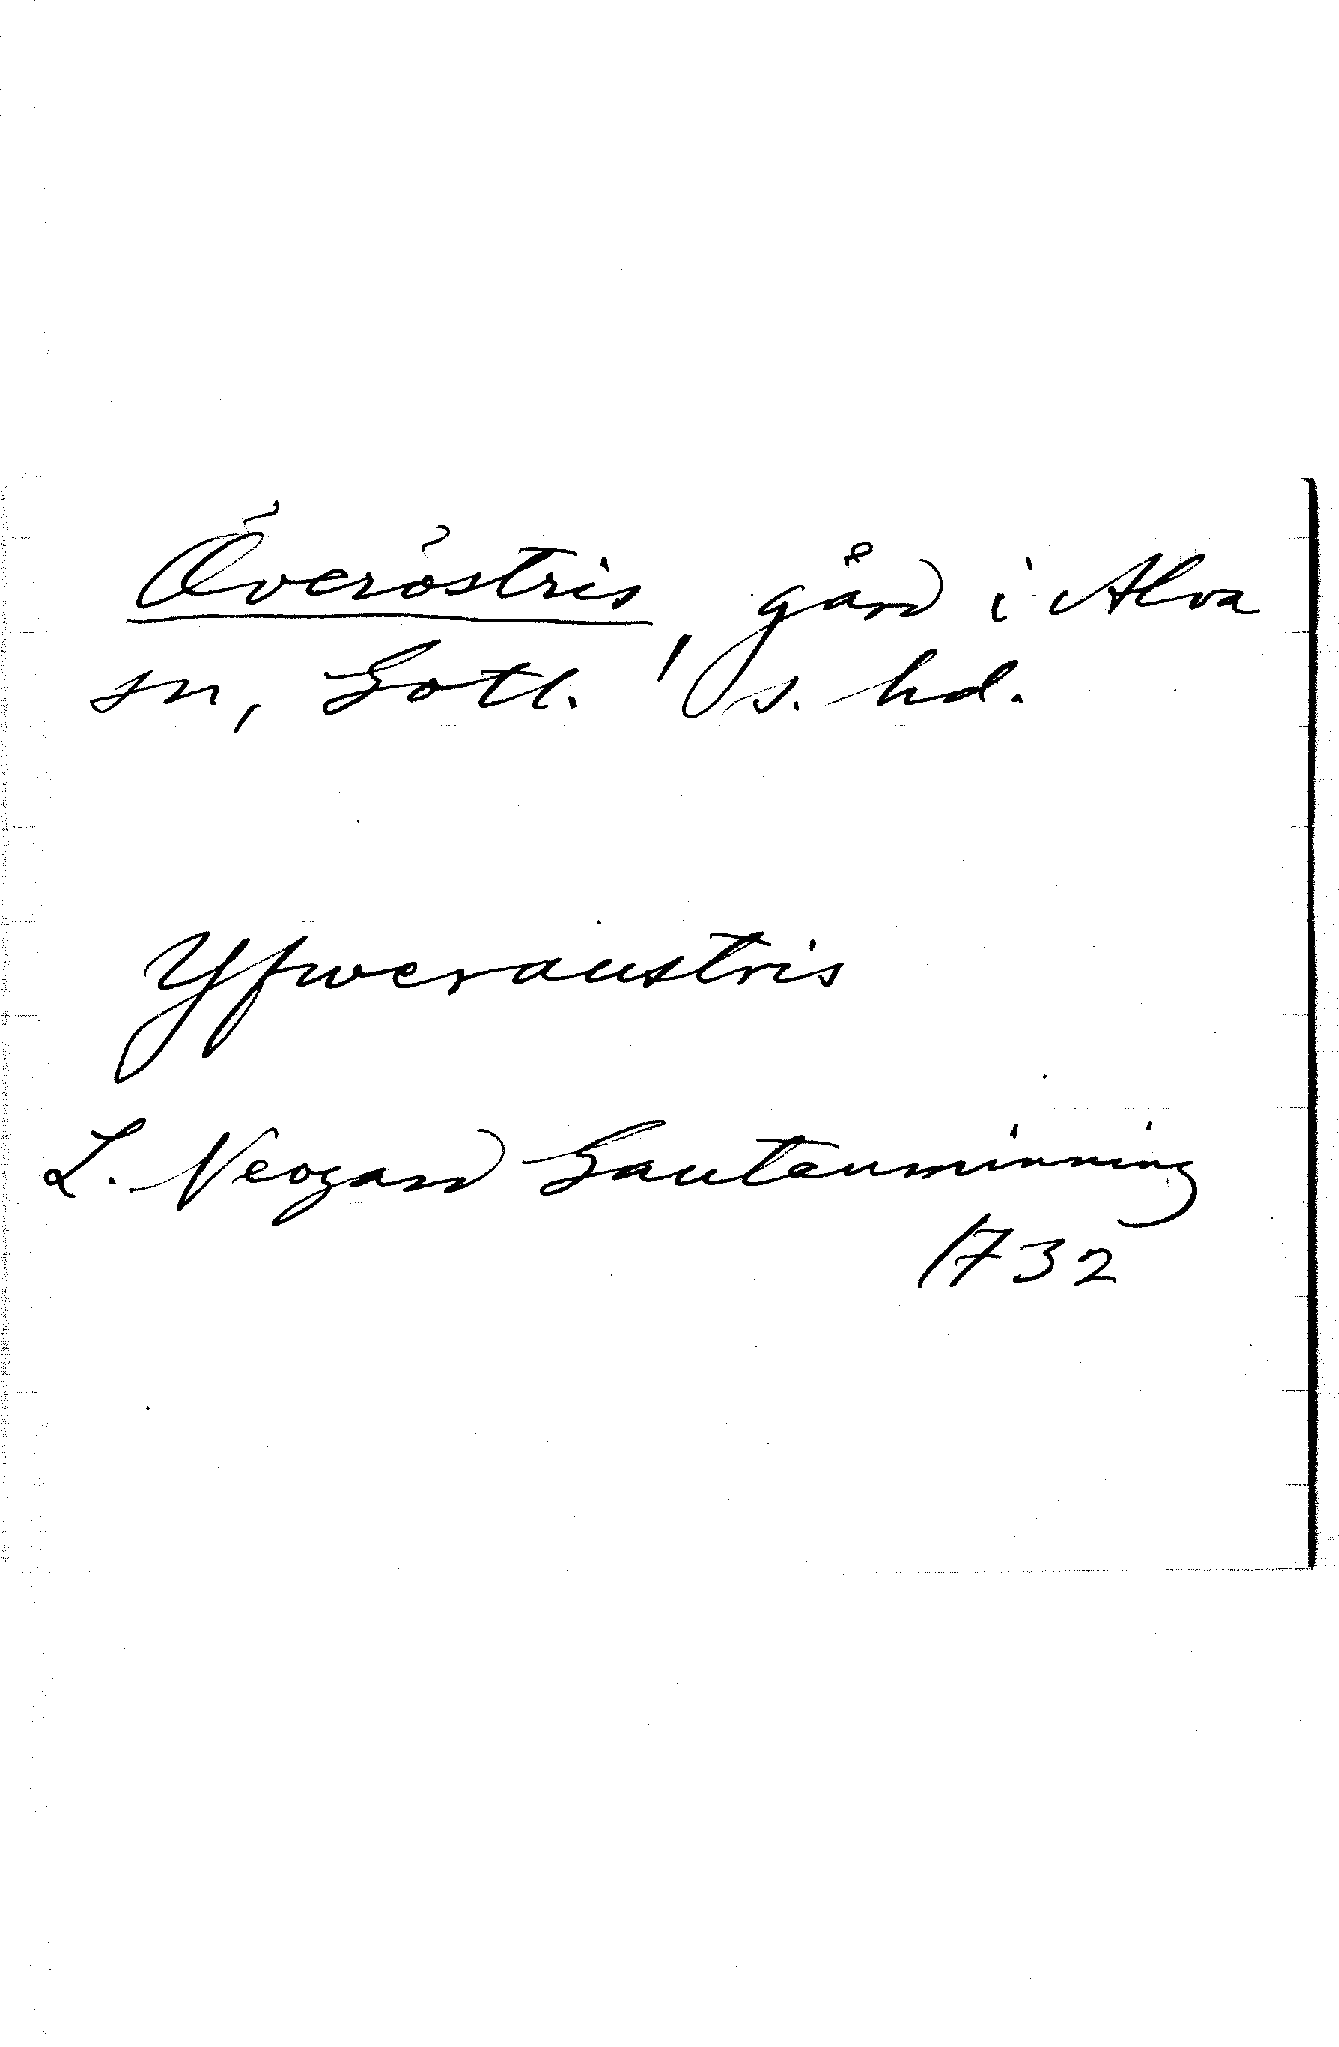 Överöstris, gård i Alva
sn, Gotl. s. hd.
Yfweraustris
L. Neogard Gautauminning
1732